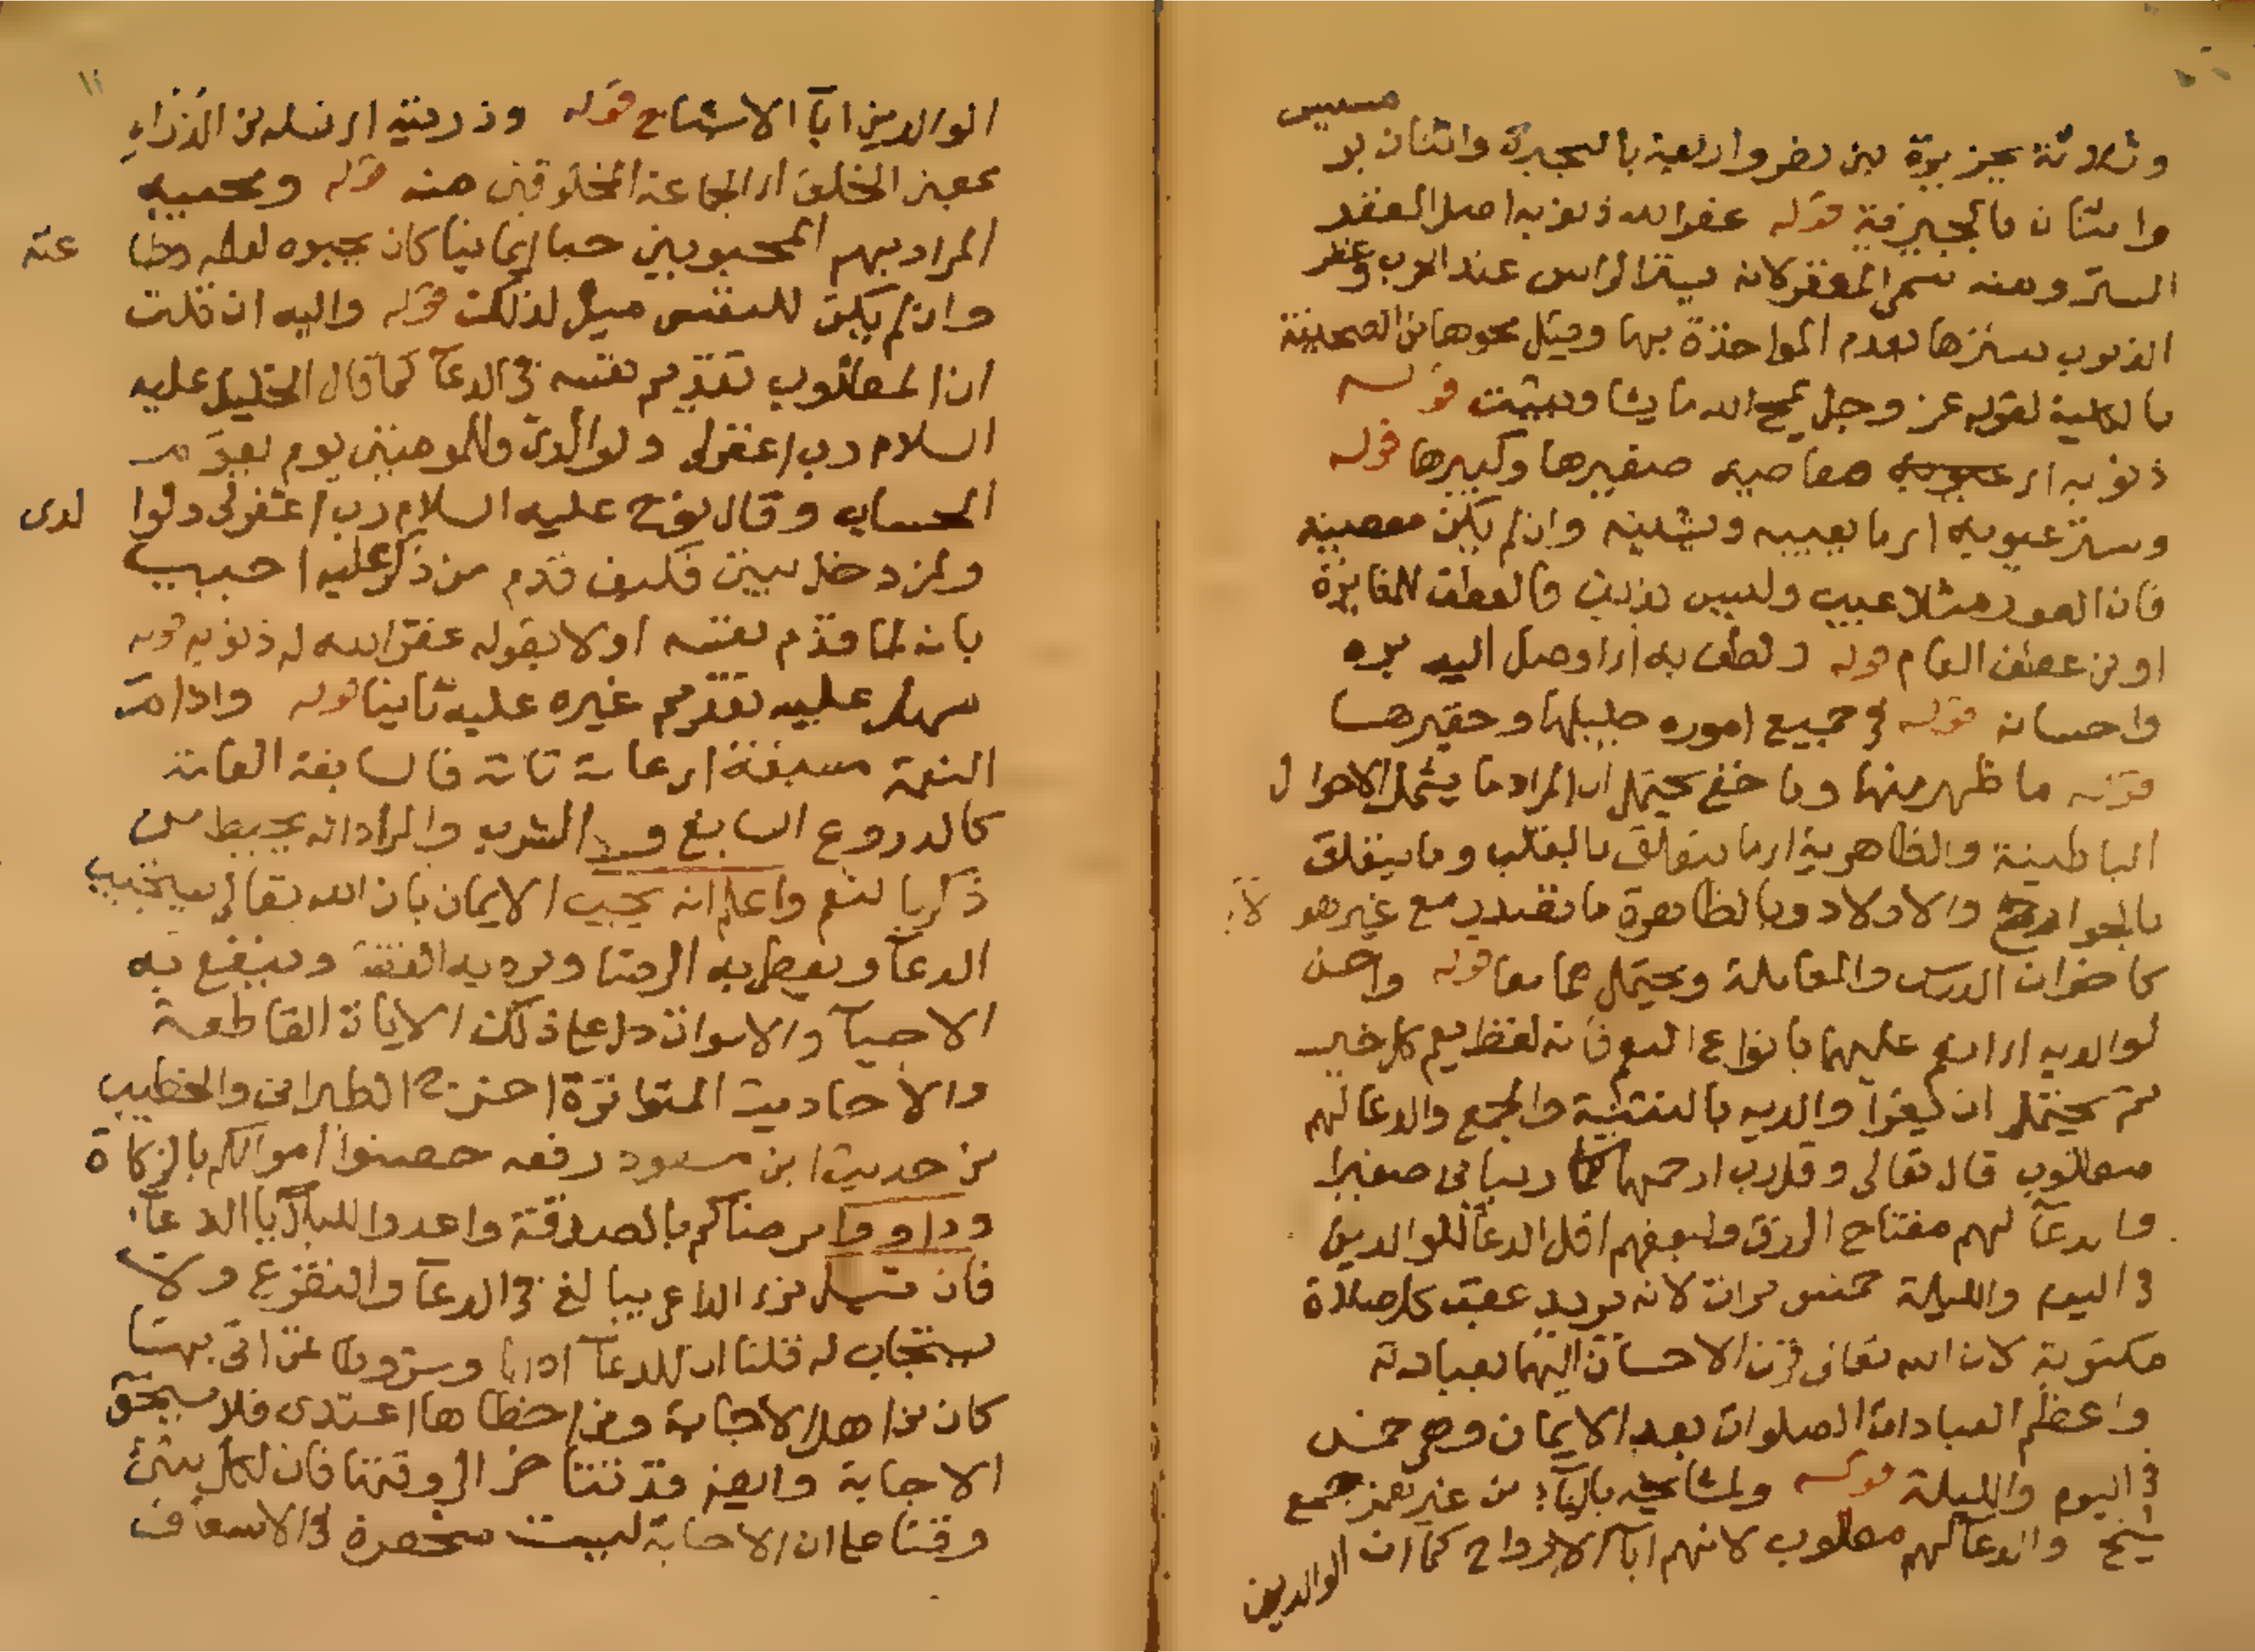 وثلاثة بجزيرة بني نصر واربعة بالبحيرة واثنان بر
مسيس
واثنان بالجيزية قوله غفر الله ذنوبه اصل الغفر
الستر ومنه سمى المغفر لانه يستر الراس عند الحرب وغفر
الذنوب سترها بعدم المواخذة بها وقيل محوها من الصحيفة
بالكلية لقوله عز وجل يمح الله ما يشا ويثبت قوله
ذنوبه اي معاصيه صغيرها وكبيرها قوله
وستر عيوبه اي ما يعيبه ويشينه وان لم يكن معصية
فان العور مثلا عيب وليس بذنب فالعطف للمغايرة
او من عطف العام قوله ولطف به اي اوصل اليه بره
واحسانه قوله في جميع اموره جليلها وحقيرها
قوله ما ظهر منها وما خفي يحتمل ان المراد ما يشمل الاحوال
الباطنية والظاهرية اي ما يتعلق بالقلب وما يتعلق
بالجوارح والاولاد وبالظاهرة ما تقيد مع غيرهو لا
كاخوان الدرس والمعاملة ويحتمل هما معا قوله واحسن
لوالديه اي انعم عليهما بانواع النعم فانه لفظ يعم كل خير
ثم يحتمل ان يقرا والديه بالتثنية والجمع والدعا لهم
مطلوب قال تعالى وقل رب ارحمهما كما ربياني صغيرا
والدعآ لهم مفتاح الرزق ولبعضهم اقل الدعآ للوالدين
في اليوم والليلة خمس مرات لانه يريد عقب كل صلاة
مكتوبة لان الله تعالى قرن الاحسان اليهما بعبادته
واعظم العبادات الصلوات بعد الايمان وهي خمس
في اليوم والليلة قوله ولمشايخه باليآء من غير همز جمع
شيخ والدعآ لهم مطلوب لانهم ابآ الارواح كما ان
الوالدين
الوالدين ابآ الاشباح قوله وذريته اي نسله من الذراء
بمعنى الخلق اي الجماعة المخلوقين منه قوله ومحبيه
المراد بهم المحبوبين حبا ايمانيا كان يحبوه لعلمه
وان لم يكن للنفس ميل لذلك قوله واليه ان قلت
ان المطلوب تقديم نفسه في الدعآ كما قال الخليل عليه
السلام رب اغفر لي ولوالدي وللمومنين يوم يقوم
الحساب وقال نوح عليه السلام رب اغفر لي ولوا لدى
ولمن دخل بيتي فكيف قدم من ذكر عليه اجيب
بانه لما قدم نفسه اولا بقوله غفر الله له ذنوبه
سهل عليه تقديم غيره عليه ثانيا قوله وادام
النعمة مسبغة اي عامة تامة فالسابغة العامة
كالدروع السابغ والمراد انه يحيط من
ذكر بالنعم واعلم انه يجب الايمان بان الله تعالى يستجيب
الدعآ ويعطي به الرضا ويرد به القضا وينفع به
الاحيآ والاموات دل على ذلك الايات القاطعة
والاحاديث المتواترة اخرج الطبراني والخطيب
من حديث ابن مسعود رفعه حصنوا اموالكم بالزكاة
وداووا مرضاكم بالصدقة واعدوا للبلآ بالدعآء
فان قيل نرى الداعي يبالغ في الدعآ والتضرع ولا
يستجاب له قلنا ان للدعآ ادابا وشروطا فمن اتى بها
كان من اهل الاجابة ومن اخطاها اعتدى فلا يستحق
الاجابة وايضا قد تتاخر الى وقتها فان لكل شيئ
وقتا على ان الاجابة ليست منحصرة في الاسعاف